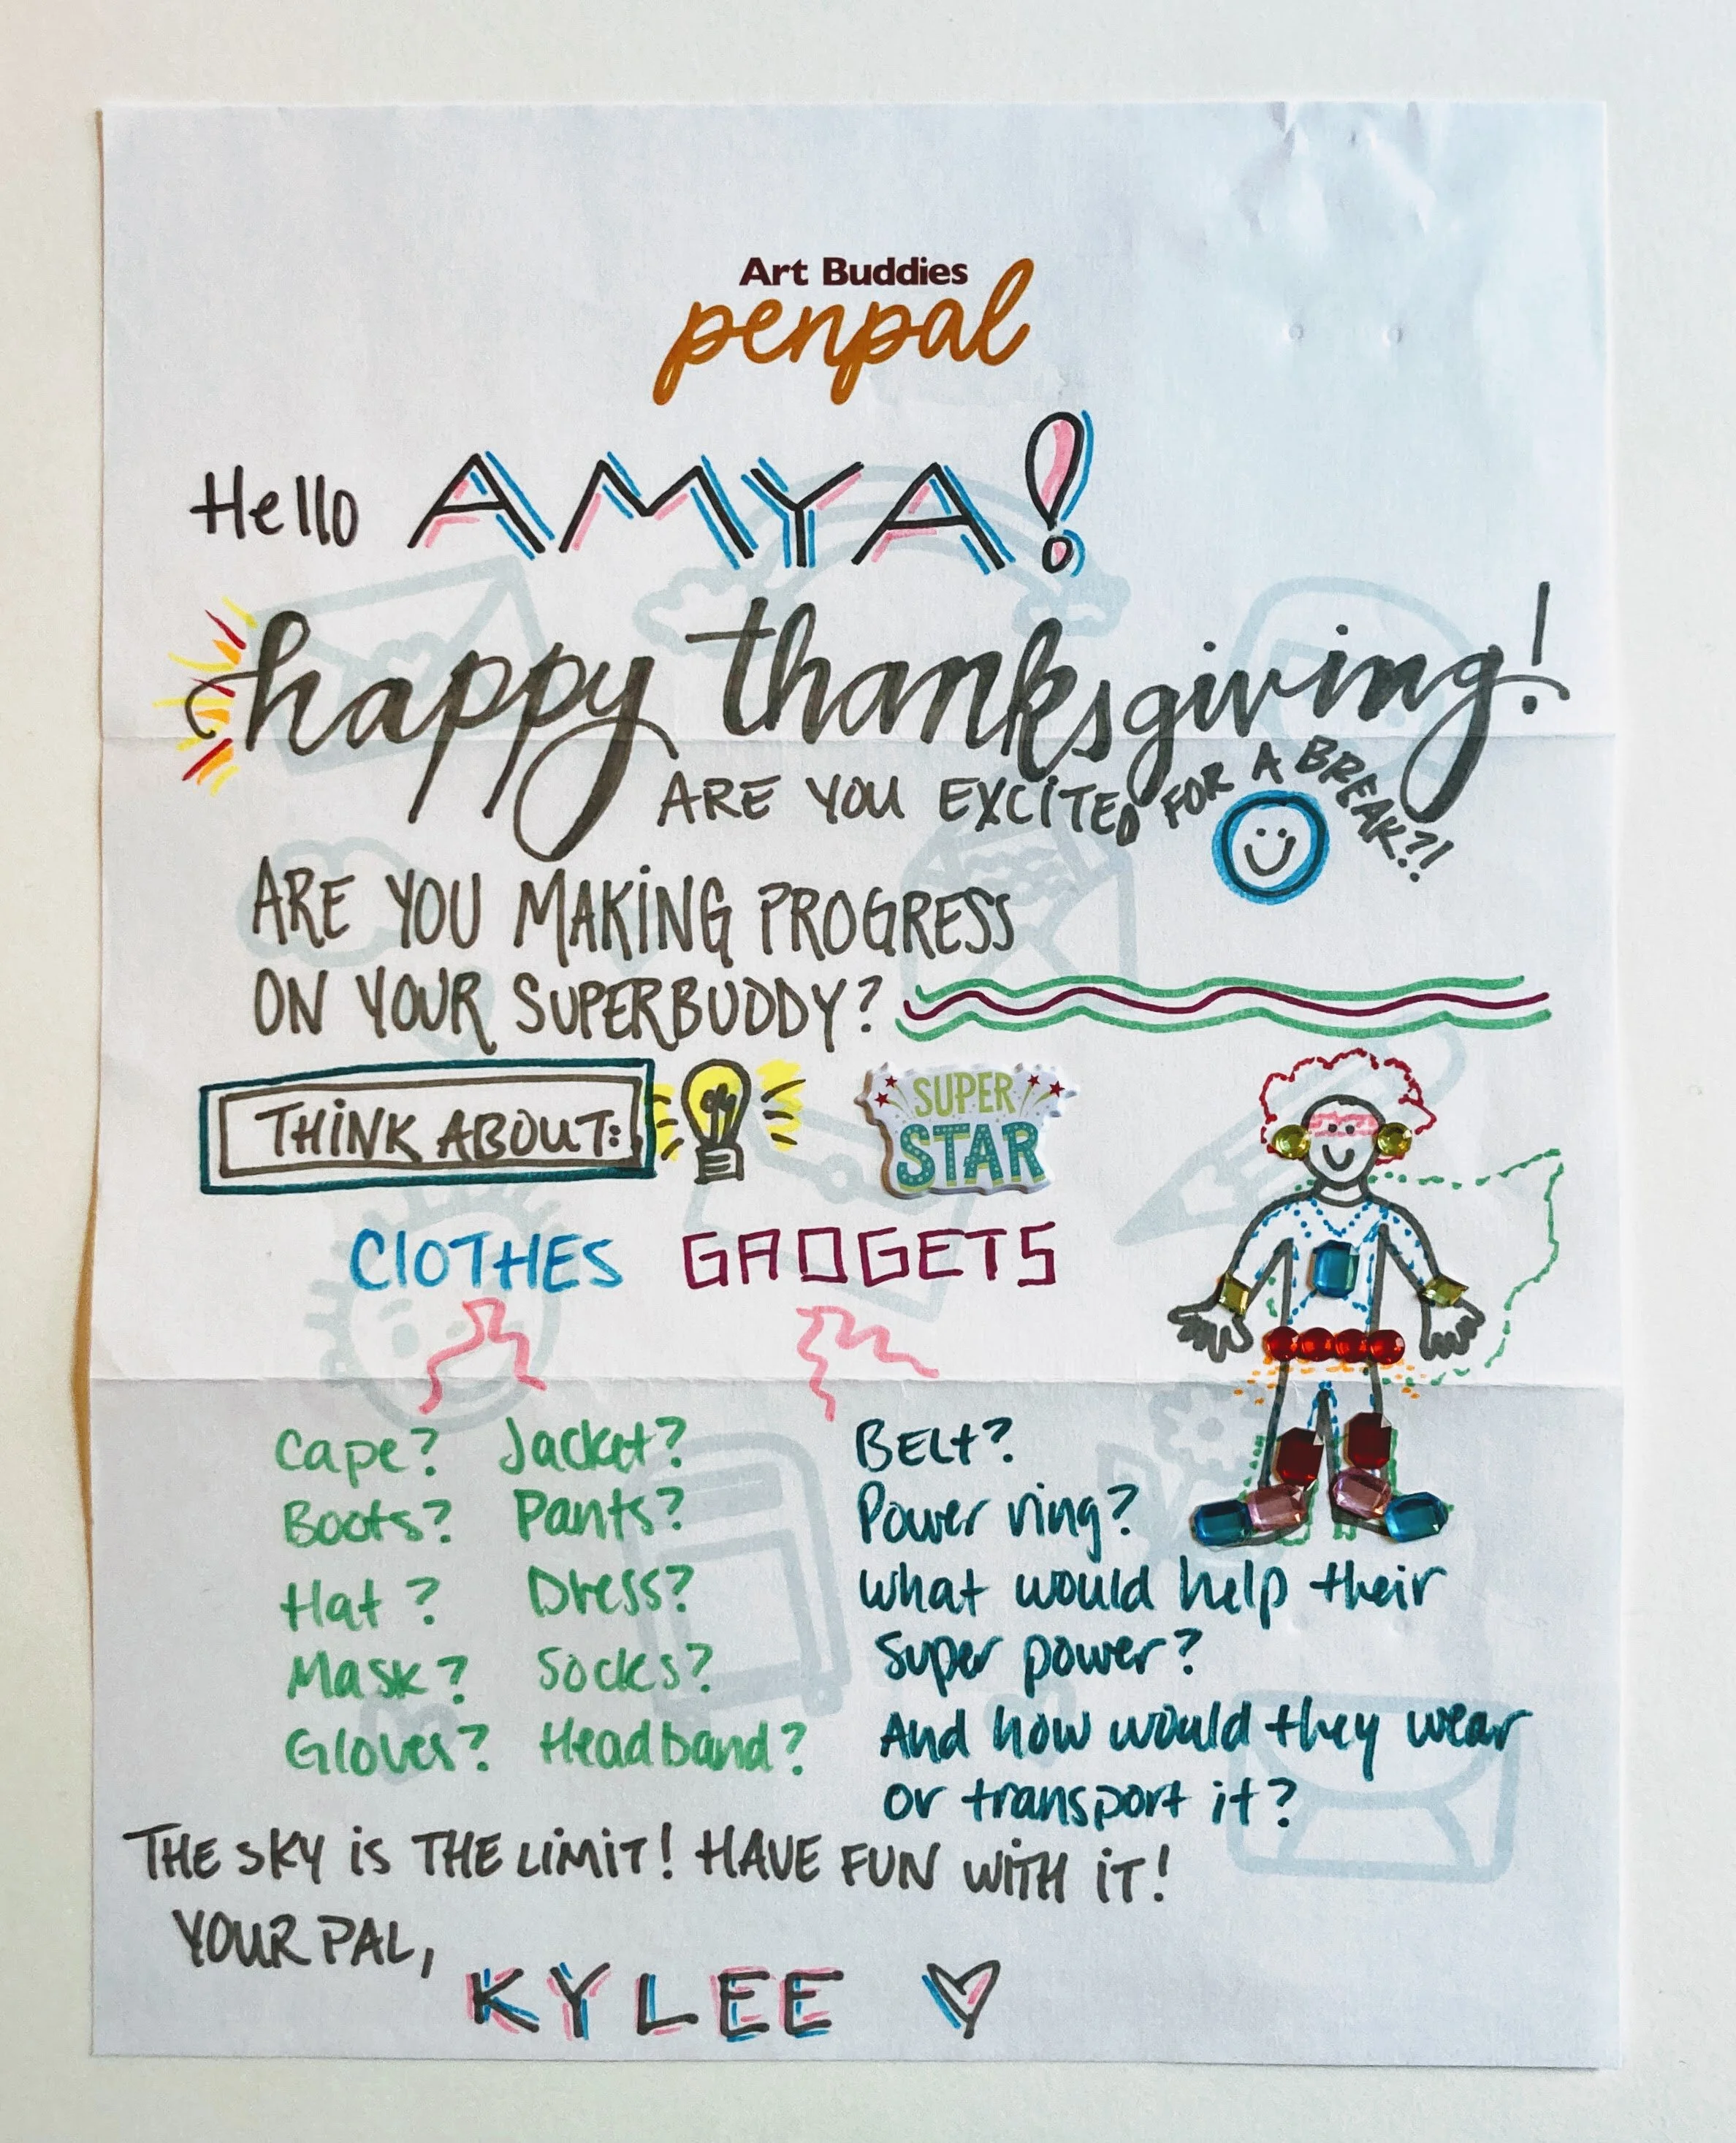 Art Buddies
penpal
Hello AMYA!
happy thanksgiving!
ARE YOU EXCITED FOR A BREAK?!
ARE YOU MAKING PROGRESS
ON YOUR SUPERBUDDY?
THINK ABOUT:
SUPER
STAR
CLOTHES GADGETS
Cape? Jacket?
Boots? Pants?
Hat? Dress?
Mask? Socks?
Gloves? Headband?
BELt?
Power ring?
what would help their
super power?
And how would they wear
or transport it?
THE SKY iS THE LiMiT! HAVE FUN WiTH iT!
YOUR PAL,
KYLEE